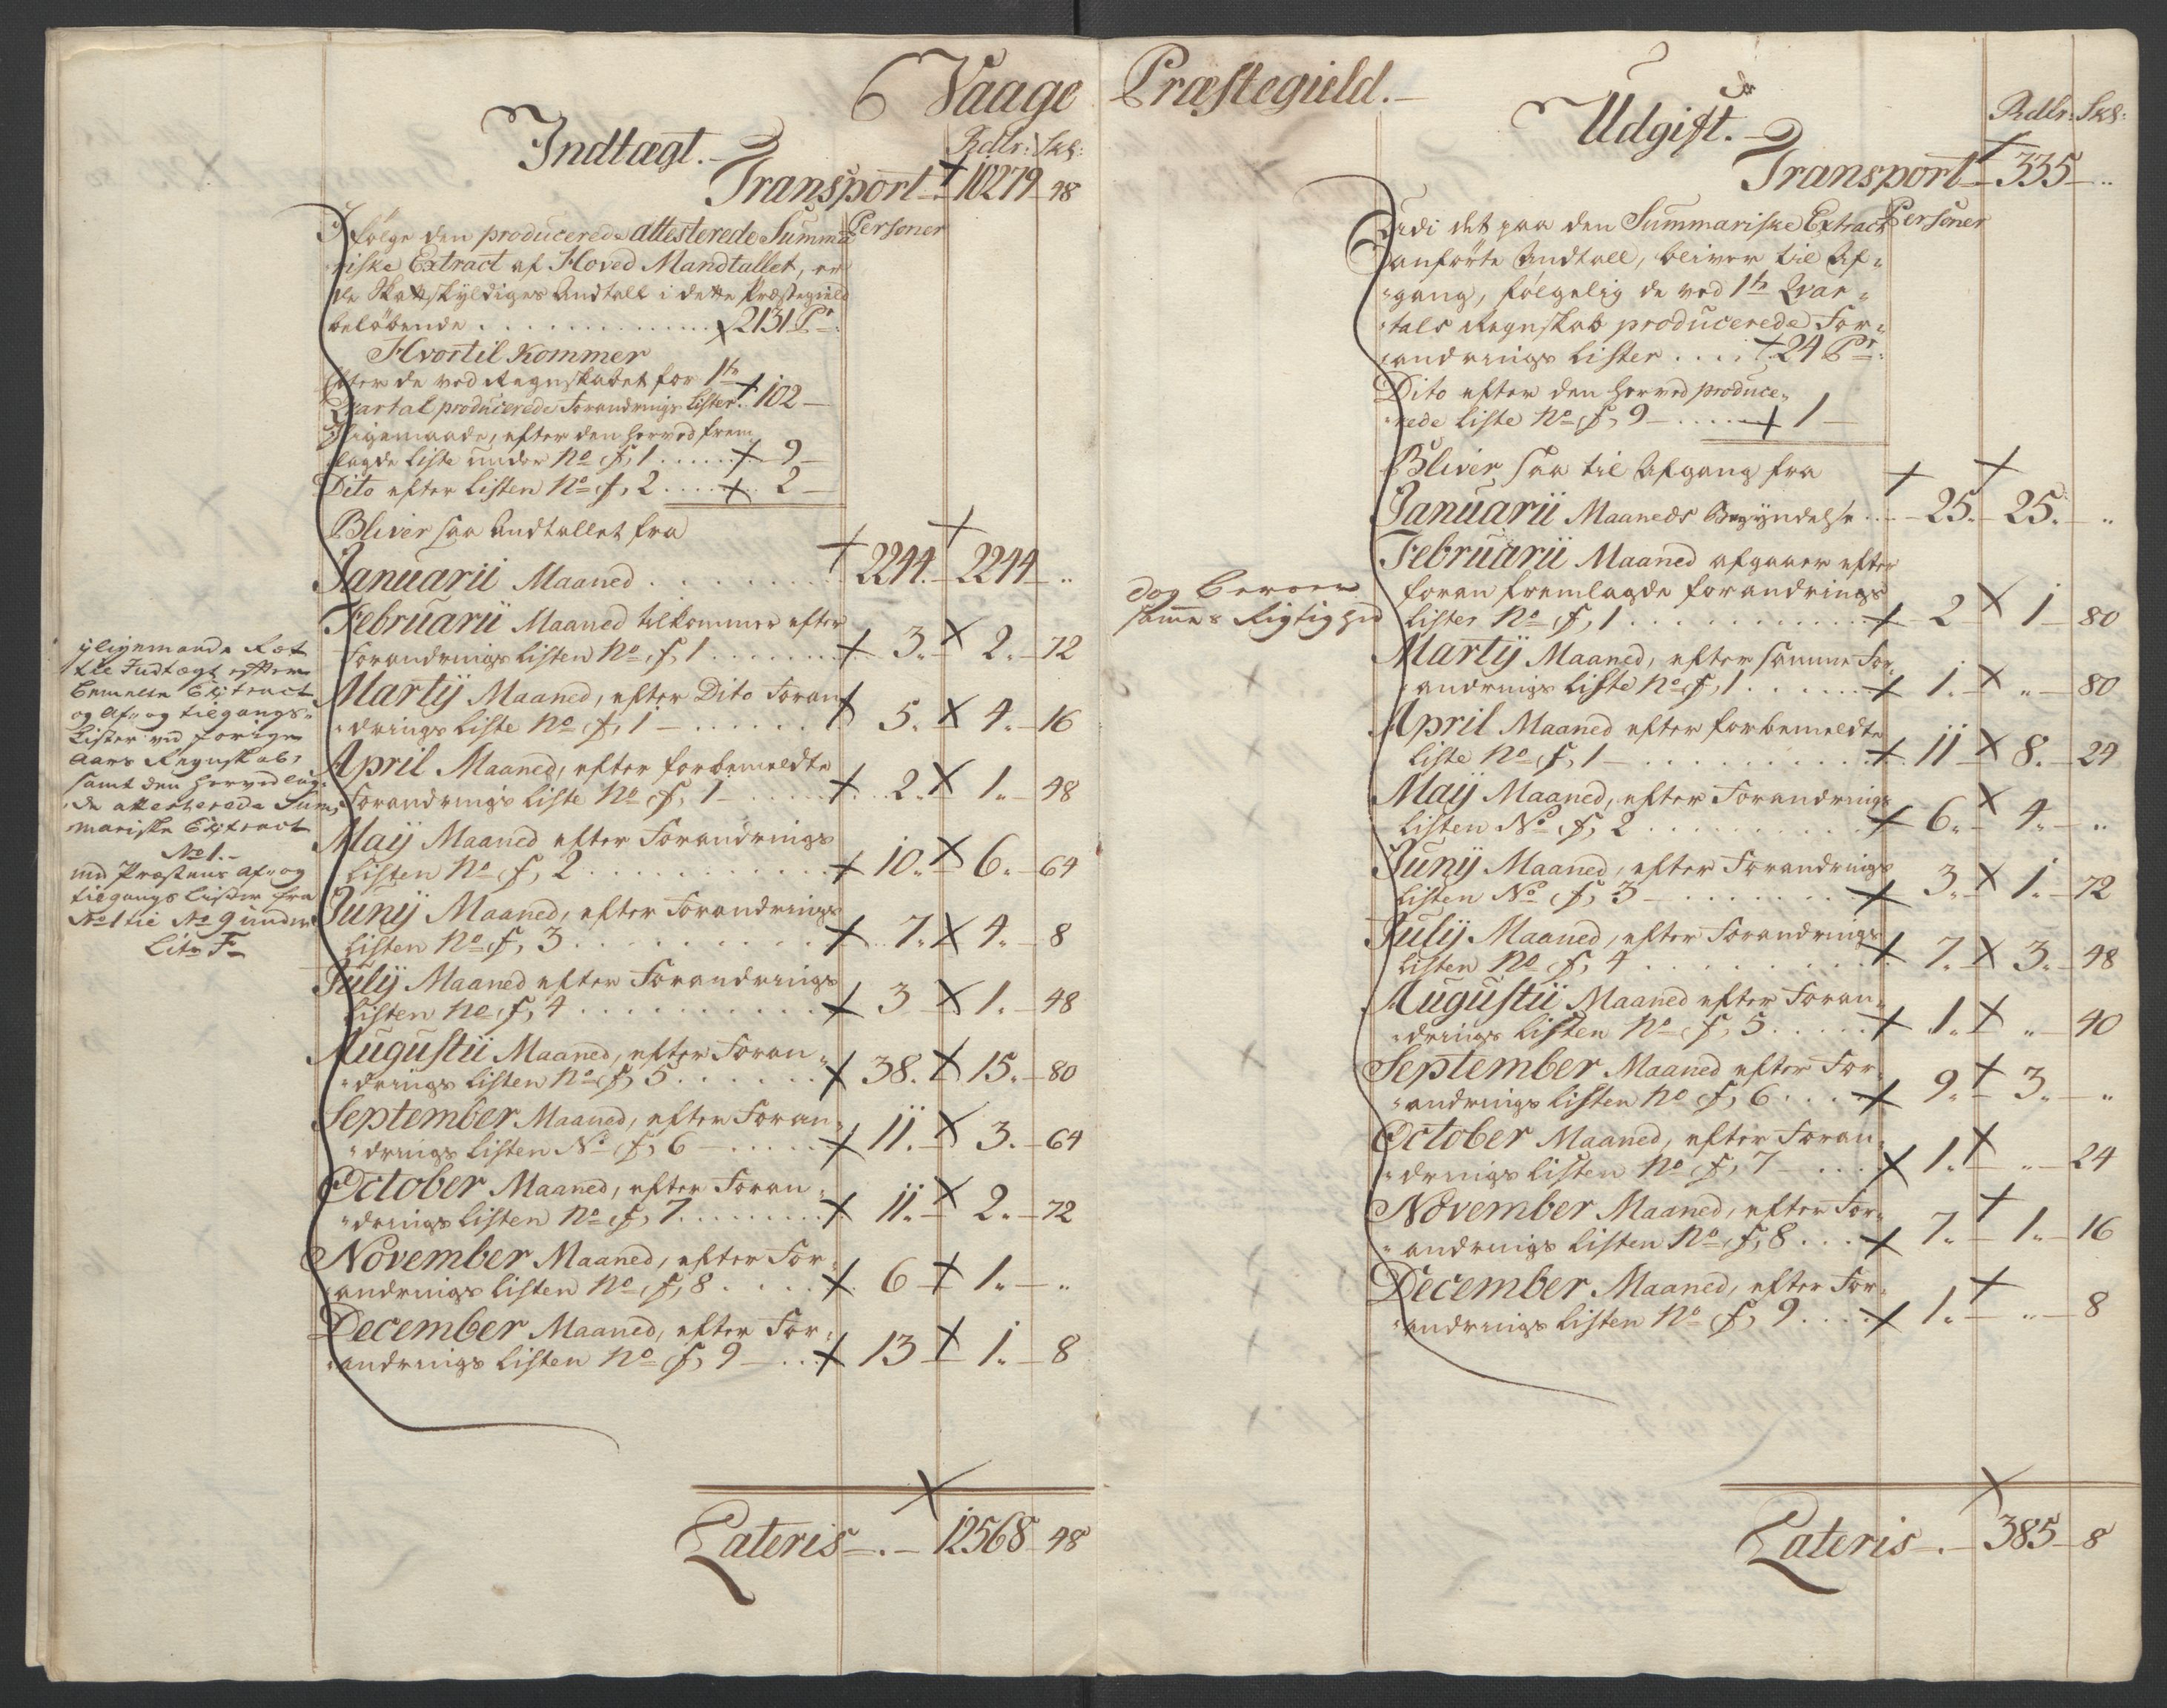 6 Vaage Præstegield.
Indtægt.
Rdlr: Sk:
Transport 10279 48
Ifølge den producerede attesterede Summa Personer
riske Extract af Hoved Mandtallet, er
de Skattskyldiges Andtall i dette Præstegield
beløbende 2131 Pr:
Hvortil kommer
Efter de ved Regnskabet for 1te
Qvartal producerede Forandrings Lister 102
Ligemaade, efter den herved frem
lagde Liste under No f, 1 9
Dito efter Listen No f, 2 2
Bliver saa Andtallet fra
Januarii Maaned 2244 2244 ..
Februarii Maaned tilkommer efter
Forandrings Listen No f, 1 3. 2. 72
Martij Maaned, efter Dito Foran
drings Liste No f, 1 5. 4. 16
April Maaned, efter forbemeldte
Forandrings Liste No f, 1 2. 1. 48
Maij Maaned efter Forandrings
Listen No f, 2 10. 6. 64
Junij Maaned, efter Forandrings
Listen No f, 3 7. 4. 8
Julij Maaned efter Forandrings
Listen No f, 4 3 1. 48
Augustii Maaned, efter Foran
drings Listen No f, 5 38. 15. 80
September Maaned, efter Foran
drings Listen No f, 6 11. 3. 64
October Maaned, efter Foran
drings Listen No f, 7 11. 2. 72
November Maaned, efter For
andrings Listen No f, 8 6 1. ..
December Maaned, efter For
andrings Listen No f, 9 13 1. 8
Lateris 12568 48
ligemaade Ret
til Indtægt efter
bemelte Extract
og Af- og tilgangs-
Lister ved forige
Aars Regnskab,
samt den herved lag-
de attesterede Sum-
mariske Extract
No 1.
med Præstens Af- og
tilgangs Lister fra
No 1 til No 9 under
Litr F
Udgift.
Rdlr: Sk:
Transport 335 ..
Udi det paa den Summariske Extract Personer
anførte Andtall, bliver til Af-
gang, følgelig de ved 1te Qvar-
tals Regnskab producerede For-
andrings Lister 24 Pr:
Dito efter den herved produce-
rede Liste No f, 9 1
Bliver saa til Afgang fra
Januarii Maaneds Begyndelse 25. 25. ..
Februarii Maaned afgaaer efter
foran fremlagde forandrings
Lister No f, 1 2 1 80
Martij Maaned, efter samme For
andrings Liste No f, 1 1. .. 80
April Maaned efter forbemeldte
Liste No f, 1 11 8. 24
Maij Maaned, efter Forandrings
Listen No f, 2 6. 4. ..
Junij Maaned, efter Forandrings
Listen No f, 3 3. 1. 72
Julij Maaned, efter Forandrings
Listen No f, 4 7. 3. 48
Augustii Maaned efter Foran-
drings Listen No f, 5 1. .. 40
September Maaned efter For-
andrings Listen No f, 6 9. 3. ..
October Maaned, efter Foran-
drings Listen No f, 7 1. .. 24
November Maaned, efter For-
andrings Listen No f, 8 7. 1. 16
December Maaned, efter For-
andrings Listen No f, 9 1. .. 8
Lateris 385 8
dog beroer
sammes Rigtighed